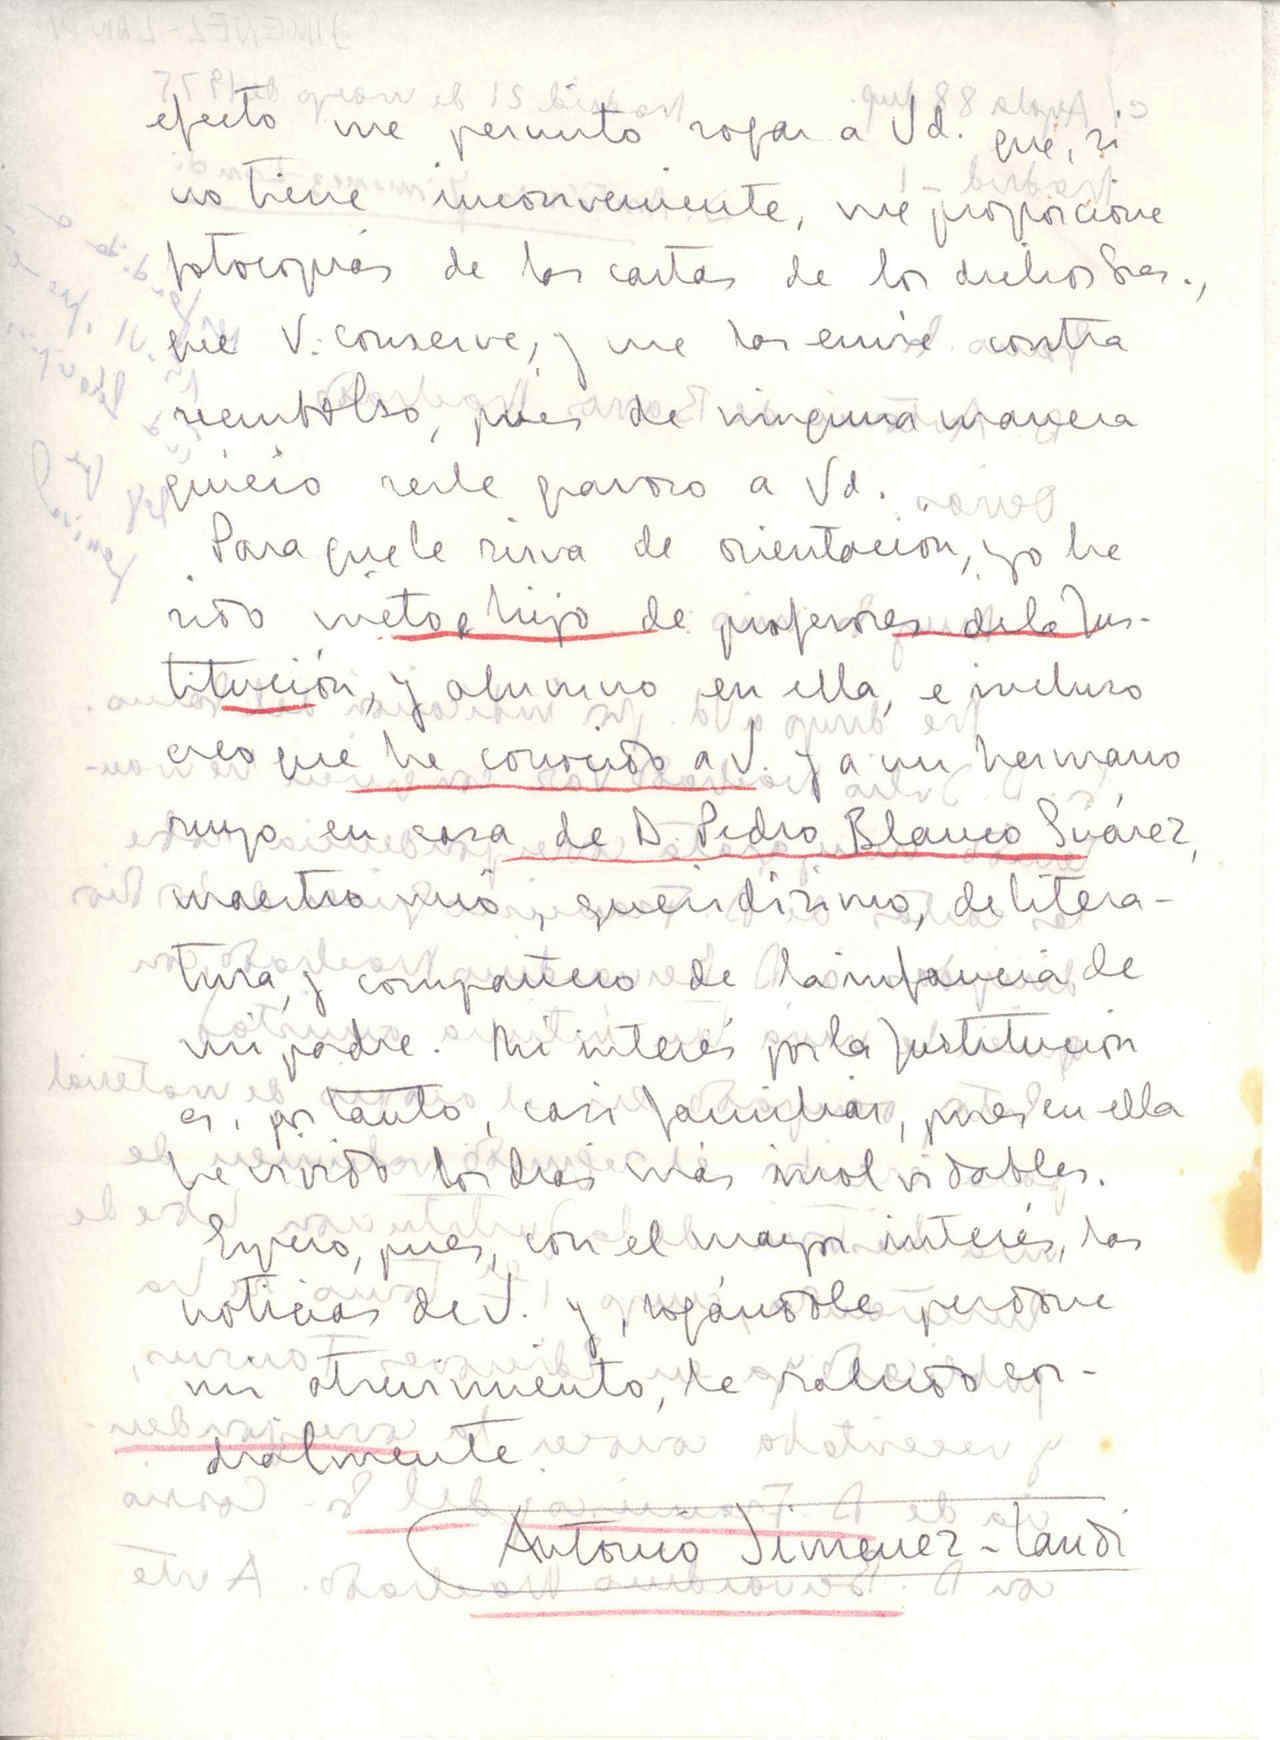 efecto me permito rogar a Vd. que, si
no tiene inconveniente, me proporcione
fotocopias de las cartas de los dichos Sres.,
que V. conserve, y me las envíe contra
reembolso, pues de ninguna manera
quiero serle gravoso a Vd.
Para que le sirva de orientación, yo he
sido nieto e hijo de profesores de la Ins-
titución, y alumno en ella, e incluso
creo que he conocido a V. y a un hermano
suyo en casa de D. Pedro Blanco Suárez,
maestro mío, queridísimo, de litera-
tura, y compañero de la infancia de
mi padre. Mi interés por la Institución
es, por tanto, casi familiar, pues en ella
he vivido los días más inolvidables.
Espero, pues, con el mayor interés, las
noticias de V. y, rogándole perdone
mi atrevimiento, le saluda cor-
dialmente
Antonio Jiménez-Landi